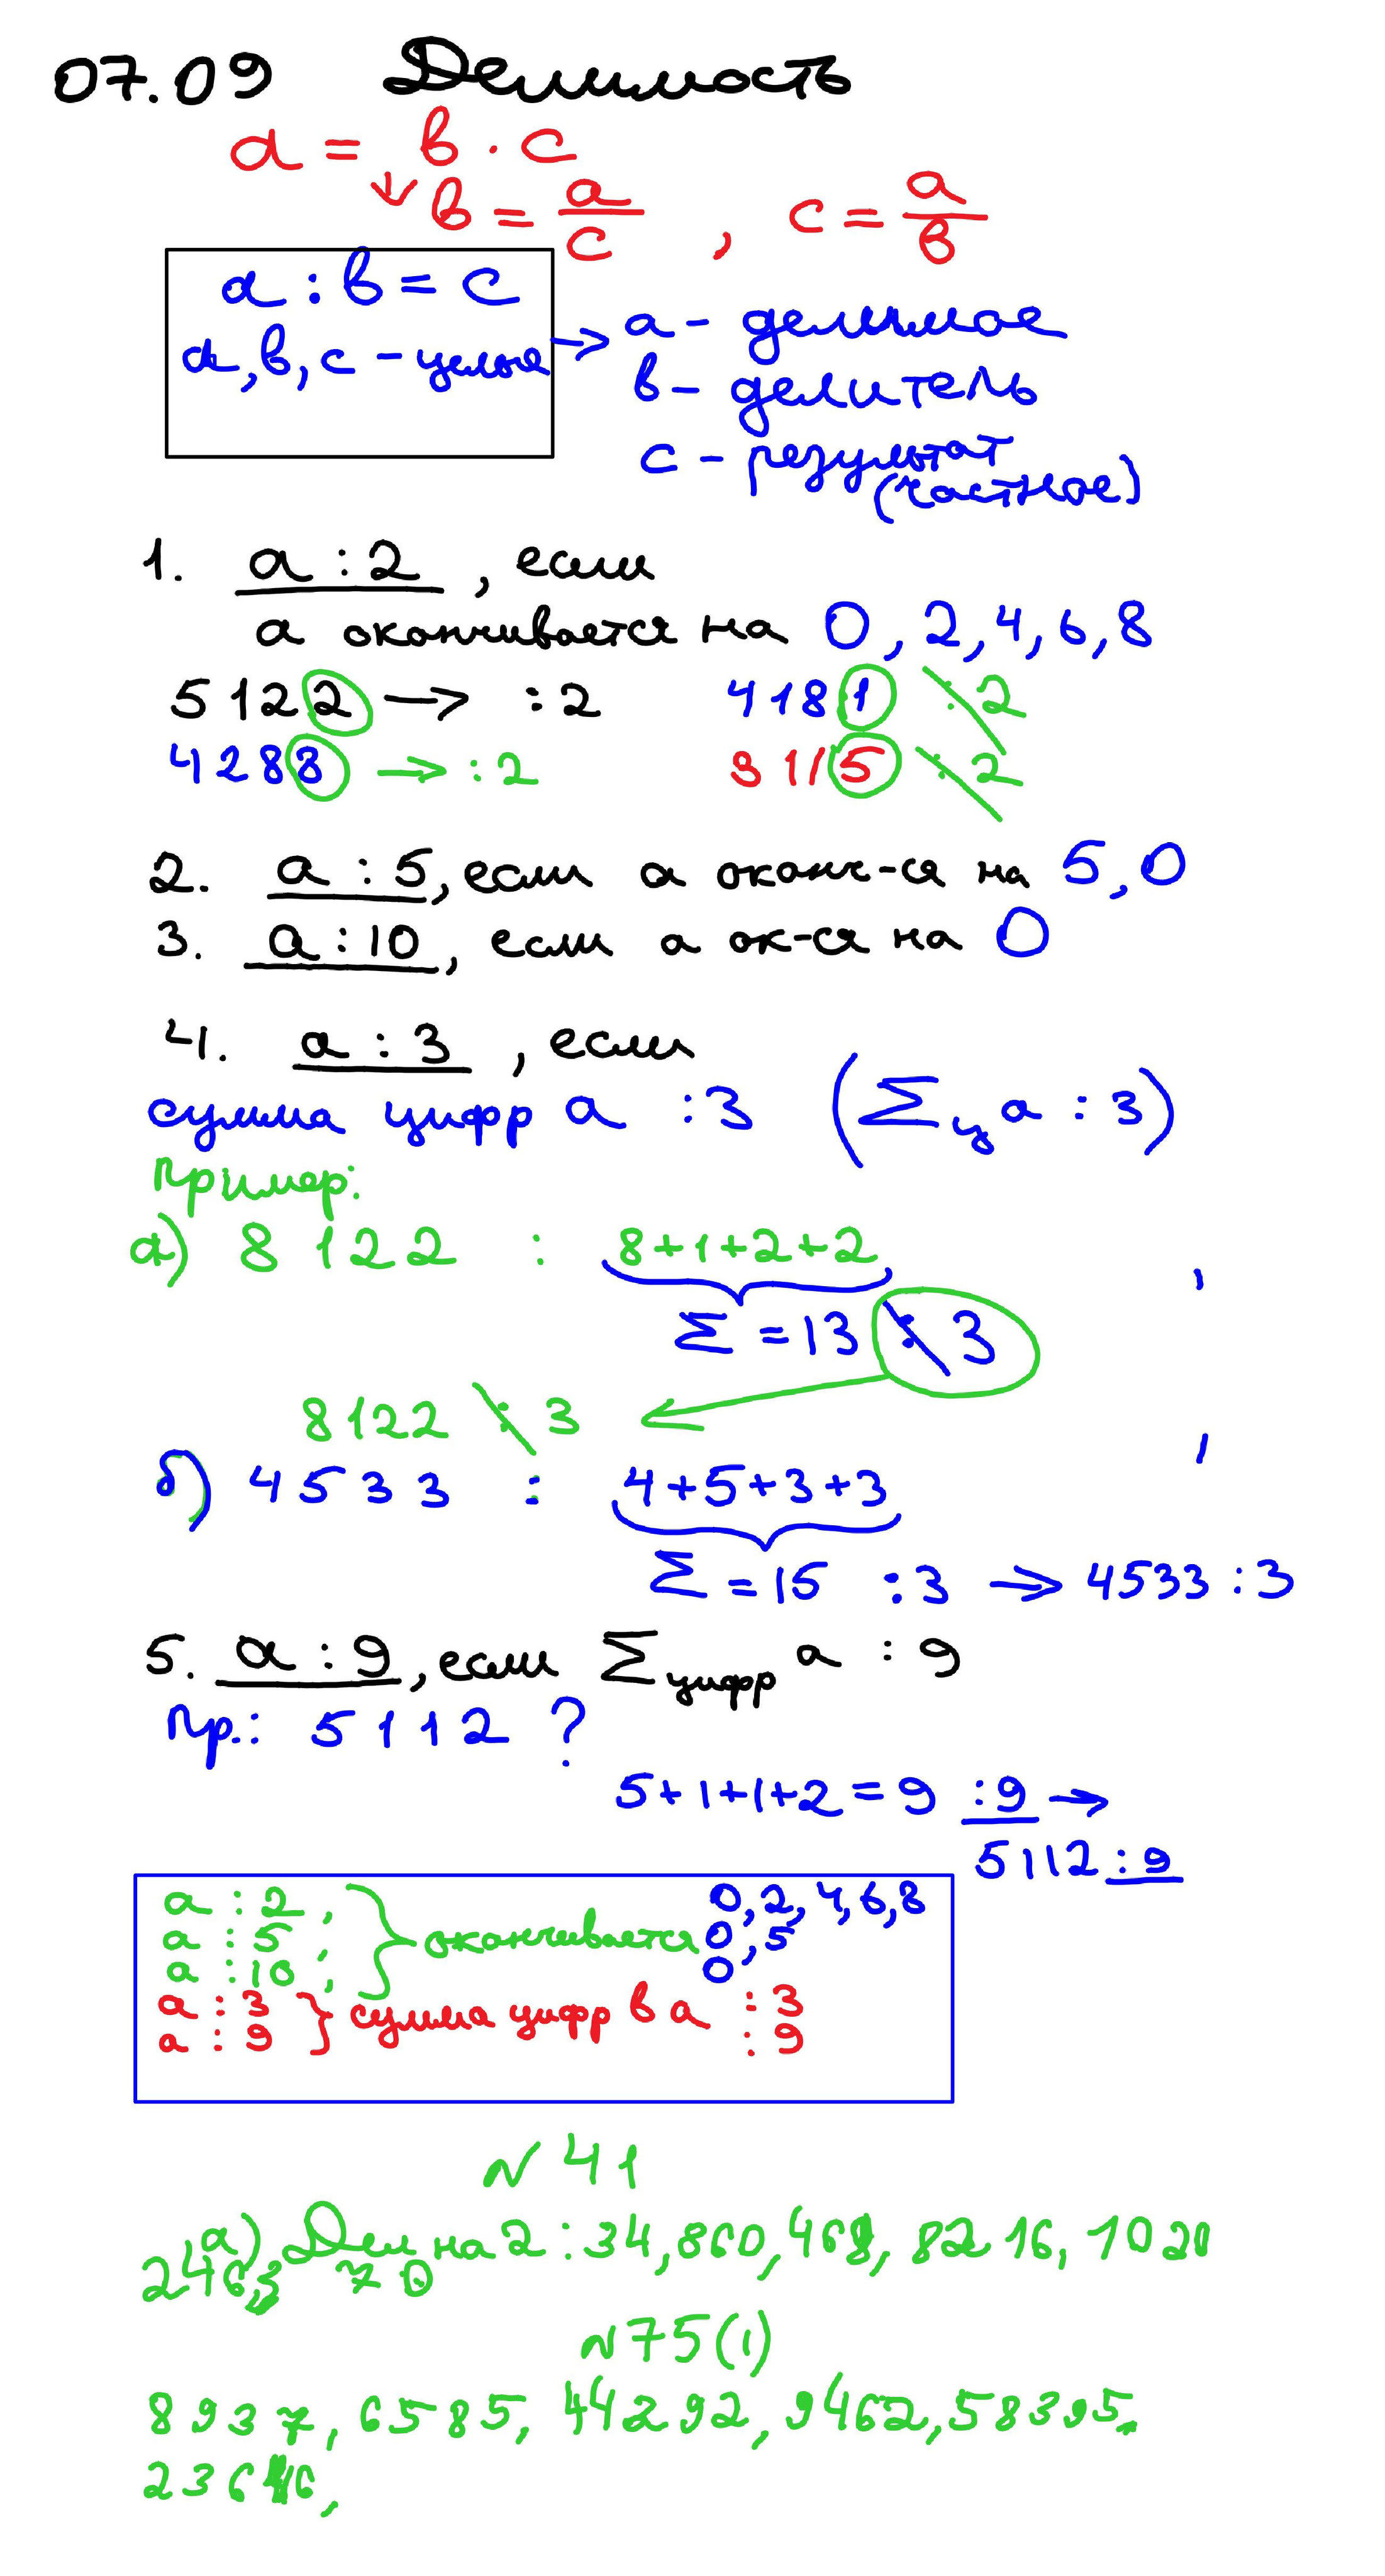 07.09 Делимость
a = b · c
b = a/c , c = a/b
a : b = c
a, b, c - целые
→ a - делимое
b - делитель
c - результат
(частное)
1. a : 2 , если
a оканчивается на 0, 2, 4, 6, 8
5122 → : 2 4181 : 2
4288 → : 2 3115 : 2
2. a : 5, если a оканч-ся на 5, 0
3. a : 10, если a ок-ся на 0
4. a : 3 , если
сумма цифр a : 3 (Σц a : 3)
Пример:
а) 8122 : 8+1+2+2
Σ = 13 : 3
8122 : 3 ←
б) 4533 : 4+5+3+3
Σ = 15 : 3 → 4533 : 3
5. a : 9, если Σцифр a : 9
Пр.: 5112 ?
5+1+1+2 = 9 : 9 →
5112 : 9
a : 2, } оканчивается 0, 2, 4, 6, 8
a : 5, 0, 5
a : 10, 0
a : 3 } сумма цифр в a : 3
a : 9 : 9
N 41
а) Дел на 2 : 34, 860, 468, 8216, 1020
2463 70
N 75(1)
8937, 6585, 44292, 9462, 58395,
23646,